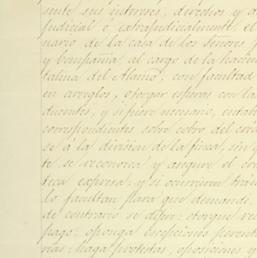 ente sus intereses, derechos y a
judicial ó extrajudicialmente, el
nario de la casa de los Señores
y compañia al cargo de la hacien
talina del Alamo, con facultad
en arreglos, otorgar esperas con las
ducentes, y si fuere necesario, entable
correspondientes sobre cobro del cred
se á la division de la finca, sin q
te se reconozca y asegure el cre
teca expresa; y si convinieren tran
lo facultan para que demande,
de contrario se defien: otorgue rec
pago: oponga escepciones perento
rias: haga protestas, oposiciones y